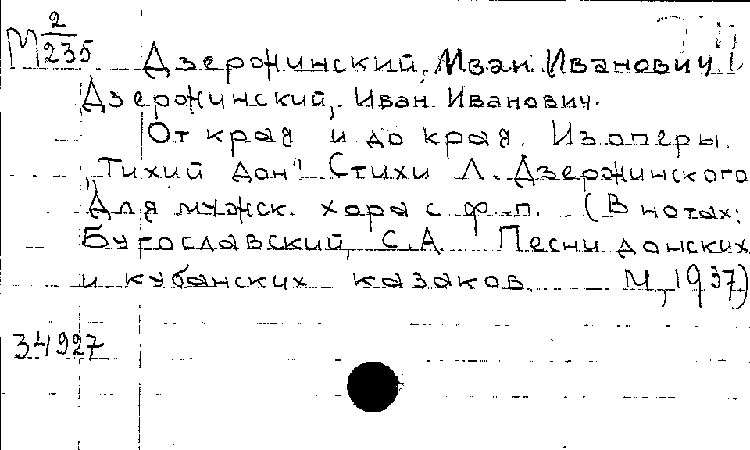 М 2/235
Дзержинский, Иван Иванович
Дзержинский, Иван Иванович.
От края и до края. Из оперы
„Тихий Дон" Стихи Л. Дзержинского
Для мужск. хора с ф-п. (В нотах:
Бугославский, С.А. Песни донских
и кубанских казаков М, 1937)
34927